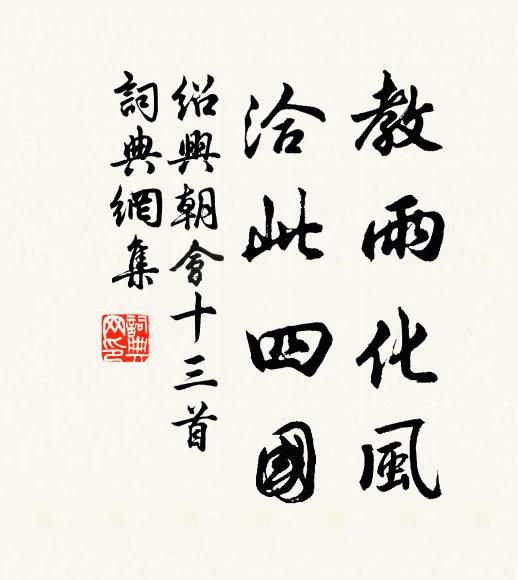 教雨化風
洽此四國
紹興朝會十三首
詞典網集
詞典
网印